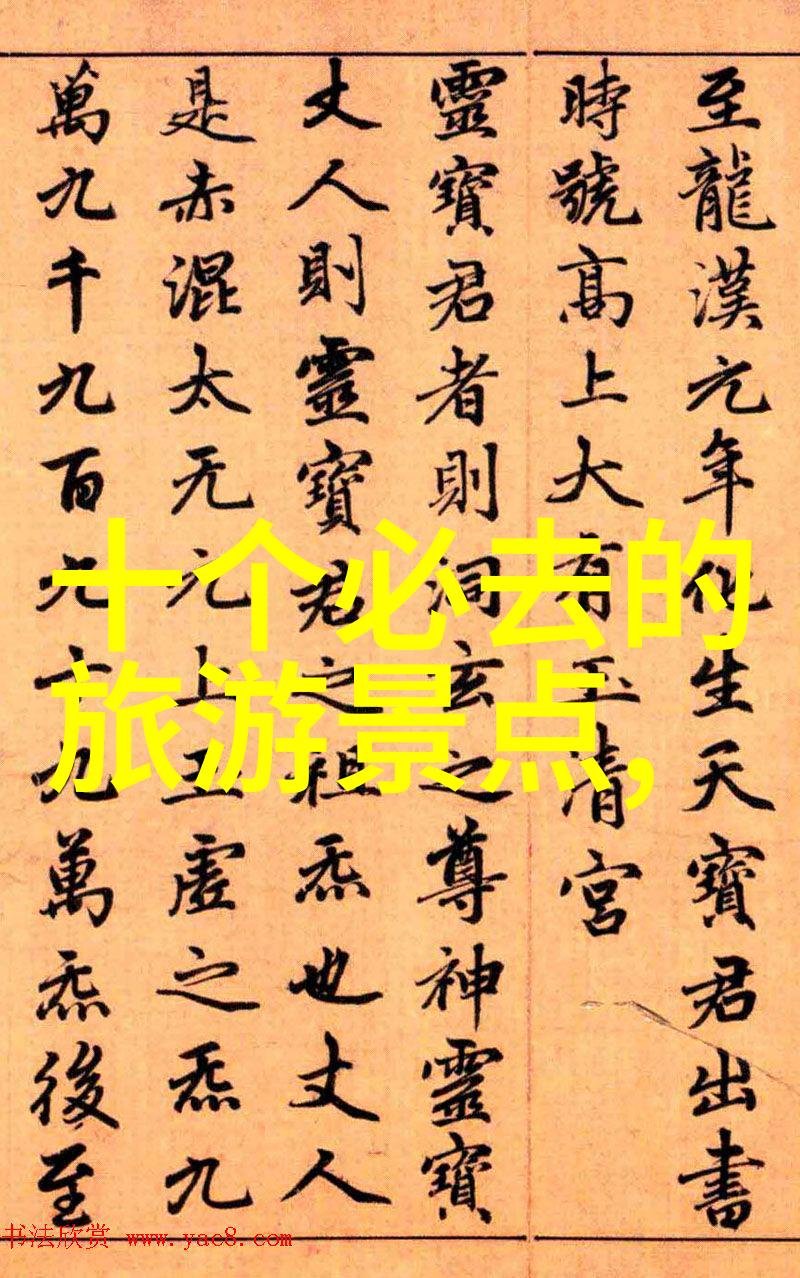 至龍漢元年化生天寶君出書
時號高上大有玉清宮
靈寶君者則洞玄之尊神靈寶
丈人則靈寶君之祖炁也丈人
是赤混太无元上玉虛之炁九
萬九千九百九十九萬炁後至
十个必去的
旅游景点,
书法欣赏 www.yac8.com